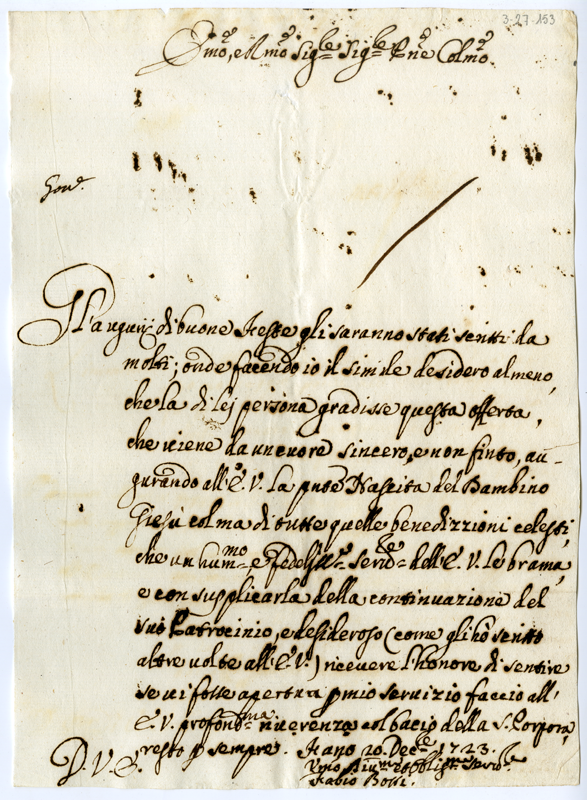 3-27-153
Emo, e Rmo Sigre Sigre Pne Colmo
Gl'augurij di buone Feste gli saranno stati scritti da
molti; onde facendo io il simile desidero almeno,
che la di lej persona gradisse questa offerta,
che viene da un cuore sincero, e non finto, au-
gurando all'E. V. la pnte Nascita del Bambino
Giesù colma di tutte quelle benedizzioni celesti,
che un hummo e fedelmo servre dell'E. V. le brama,
e con supplicarla della continuazione del
suo Patrocinio, e desideroso (come gli hò scritto
altre volte all'E. V.) ricevere l'honore di sentire
se vi fosse apertura p mio servizio faccio all'
E. V. profondma riverenza col bacio della S. Porpora,
resto p sempre. Fano 20. Decre 1723.
D. V. E.
Vmo Diumo et obbligmo servre
Fabio Bossi.